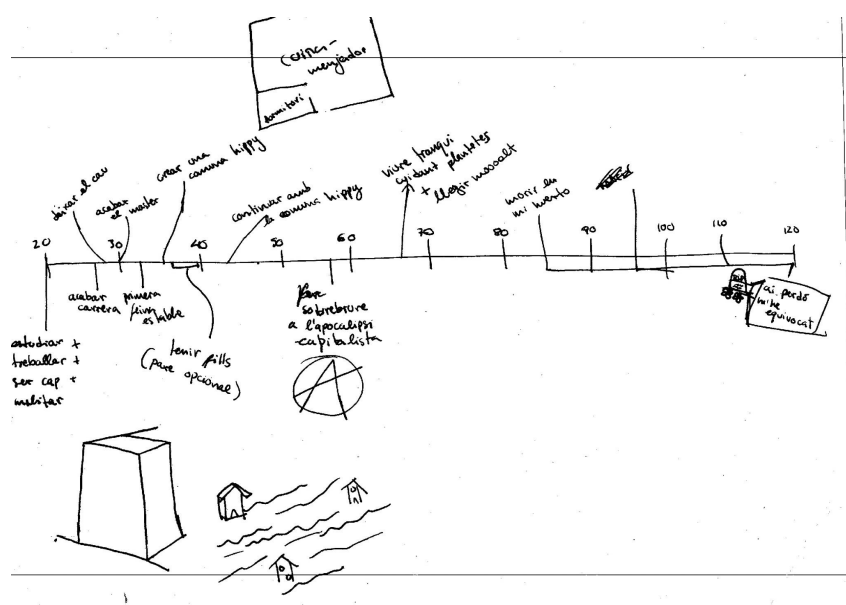 cuina-
menjador
dormitori
deixar el cau
acabar
el master
crear una
comuna hippy
continuar amb
la comuna hippy
viure tranqui
cuidant plantetes
+
llegir mooolt
morir en
mi huerto
20
30
40
50
60
70
80
90
100
110
120
acabar
carrera
primera
feina
estable
estudiar +
treballar +
ser cap +
militar
tenir fills
(pare opcional)
sobreviure
a l'apocalipsi
capitalista
A
ai perdó
m'he
equivocat
RIP